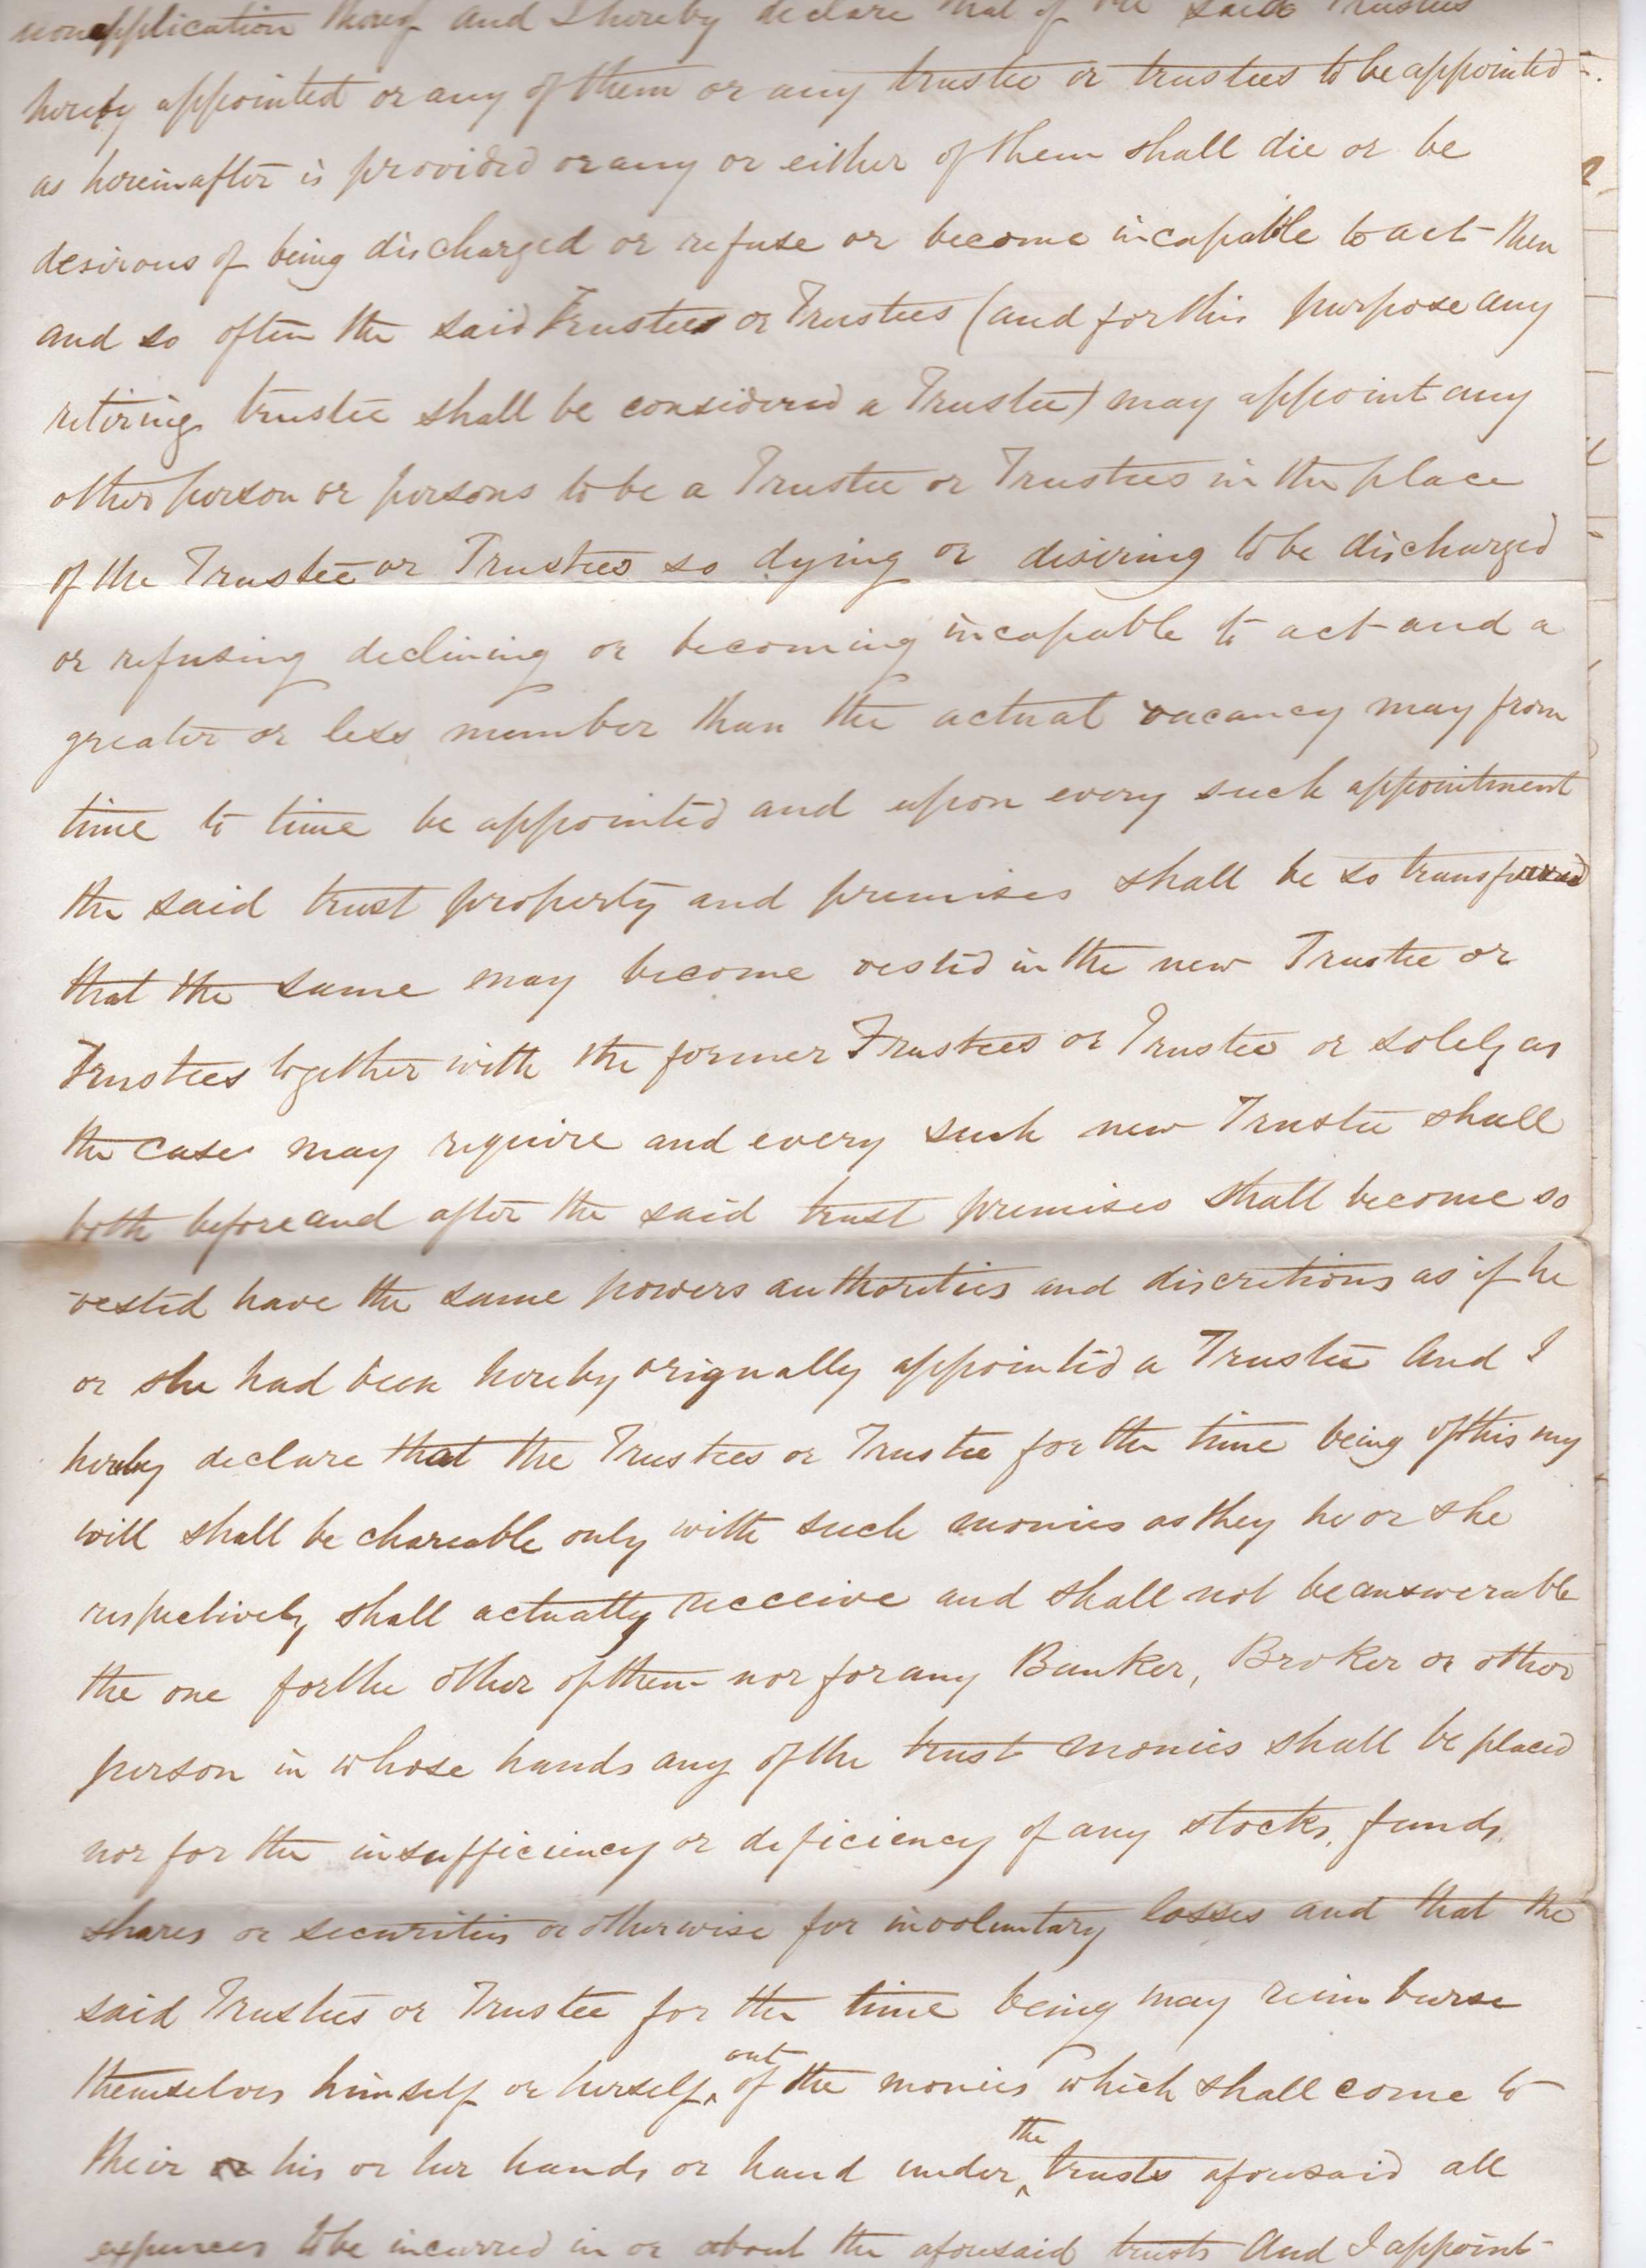 nonapplication thereof and I hereby declare that if the said Trustees
hereby appointed or any of them or any trustee or trustees to be appointed
as hereinafter is provided or any or either of them shall die or be
desirous of being discharged or refuse or become incapable to act then
and so often the said Trustees or Trustees (and for this purpose any
retiring trustee shall be considered a Trustee) may appoint any
other person or persons to be a Trustee or Trustees in the place
of the Trustee or Trustees so dying or desiring to be discharged
or refusing declining or becoming incapable to act and a
greater or less number than the actual vacancy may from
time to time be appointed and upon every such appointment
the said trust property and premises shall be so transferred
that the same may become vested in the new Trustee or
Trustees together with the former Trustees or Trustee or solely as
the case may require and every such new Trustee shall
both before and after the said trust premises shall become so
vested have the same powers authorities and discretions as if he
or she had been hereby orignally appointed a Trustee And I
hereby declare that the Trustees or Trustee for the time being of this my
will shall be chareable only with such monies as they he or she
respectively shall actually receive and shall not be answerable
the one for the other of them nor for any Banker, Broker or other
person in whose hands any of the trust monies shall be placed
nor for the insufficiency or deficiency of any stocks, funds,
shares or securities or otherwise for involuntary losses and that the
said Trustees or Trustee for the time being may reimburse
themselves himself or herself out of the monies which shall come to
their or his or her hands or hand under the trusts aforesaid all
expences to be incurred in or about the aforesaid trusts And I appoint